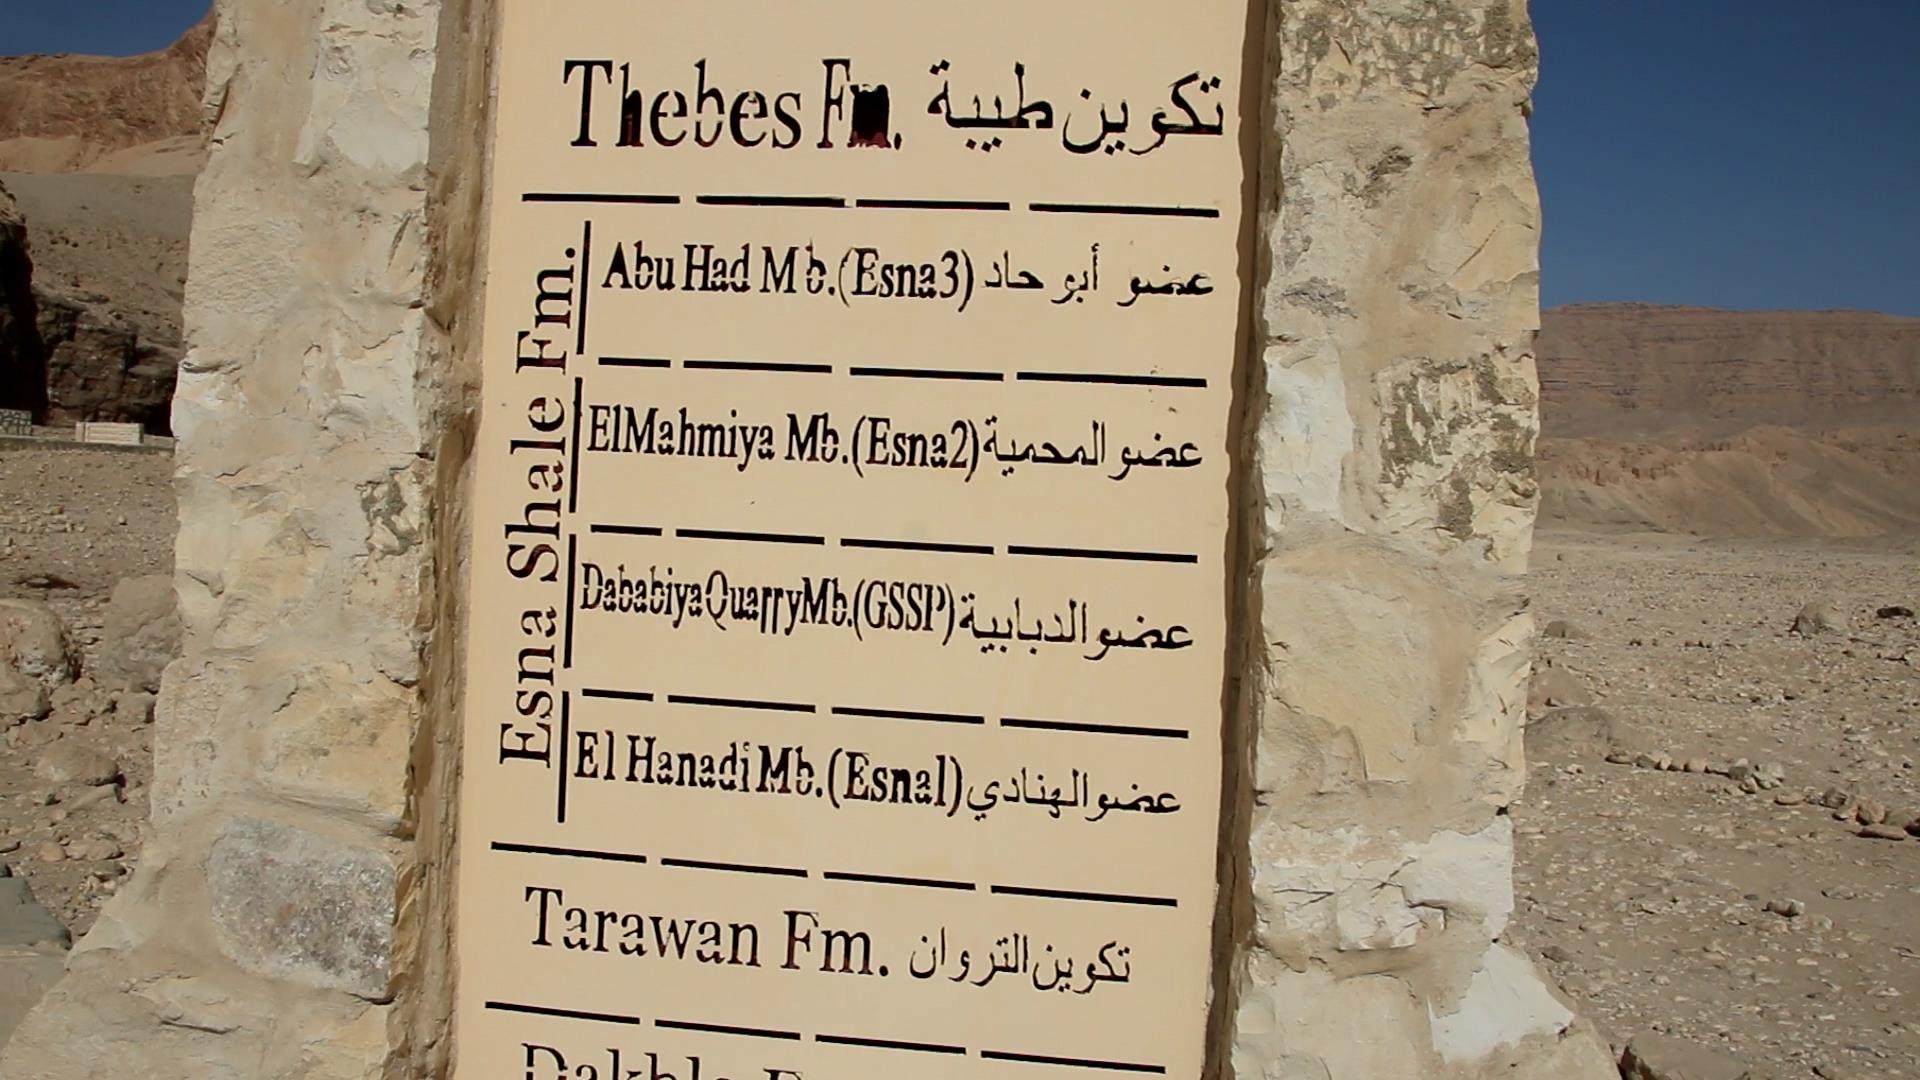 Thebes Fm. تكوين طيبة
Esna Shale Fm.
Abu Had Mb.(Esna3) عضو أبو حاد
El Mahmiya Mb.(Esna2) عضو المحمية
Dababiya Quarry Mb.(GSSP) عضو الدبابية
El Hanadi Mb.(Esna1) عضو الهنادي
Tarawan Fm. تكوين التروان